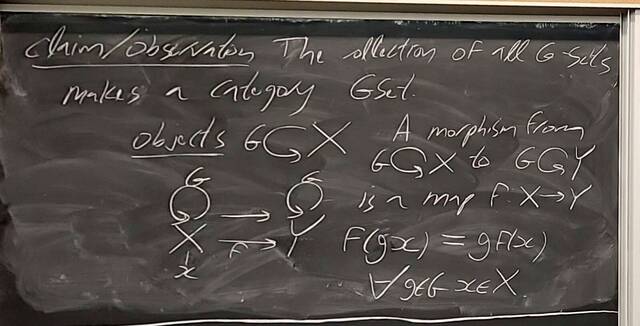 Claim/observation The collection of all G-sets
makes a category GSet.
Objects G↻X A morphism from
G↻X to G↻Y
is a map f: X→Y
f(gx) = gf(x)
∀ g∈G x∈X
G → G
X →f Y
x